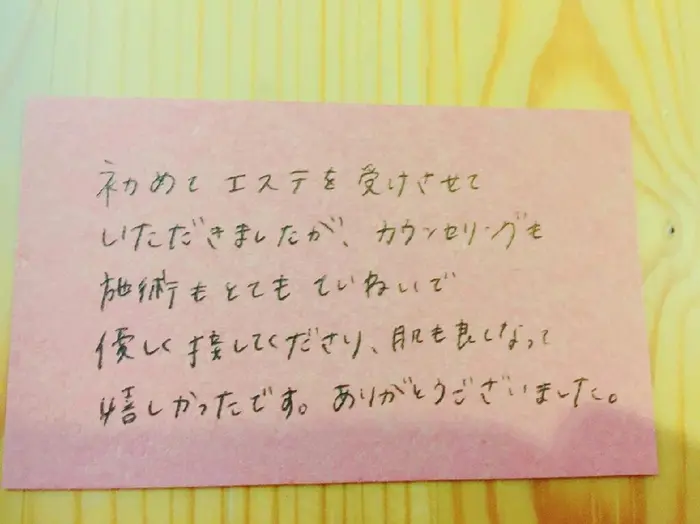 初めて エステを 受けさせて
いただきましたが、カウンセリングも
施術もとてもていねいで
優しく接してくださり、肌も良くなって
嬉しかったです。ありがとうございました。